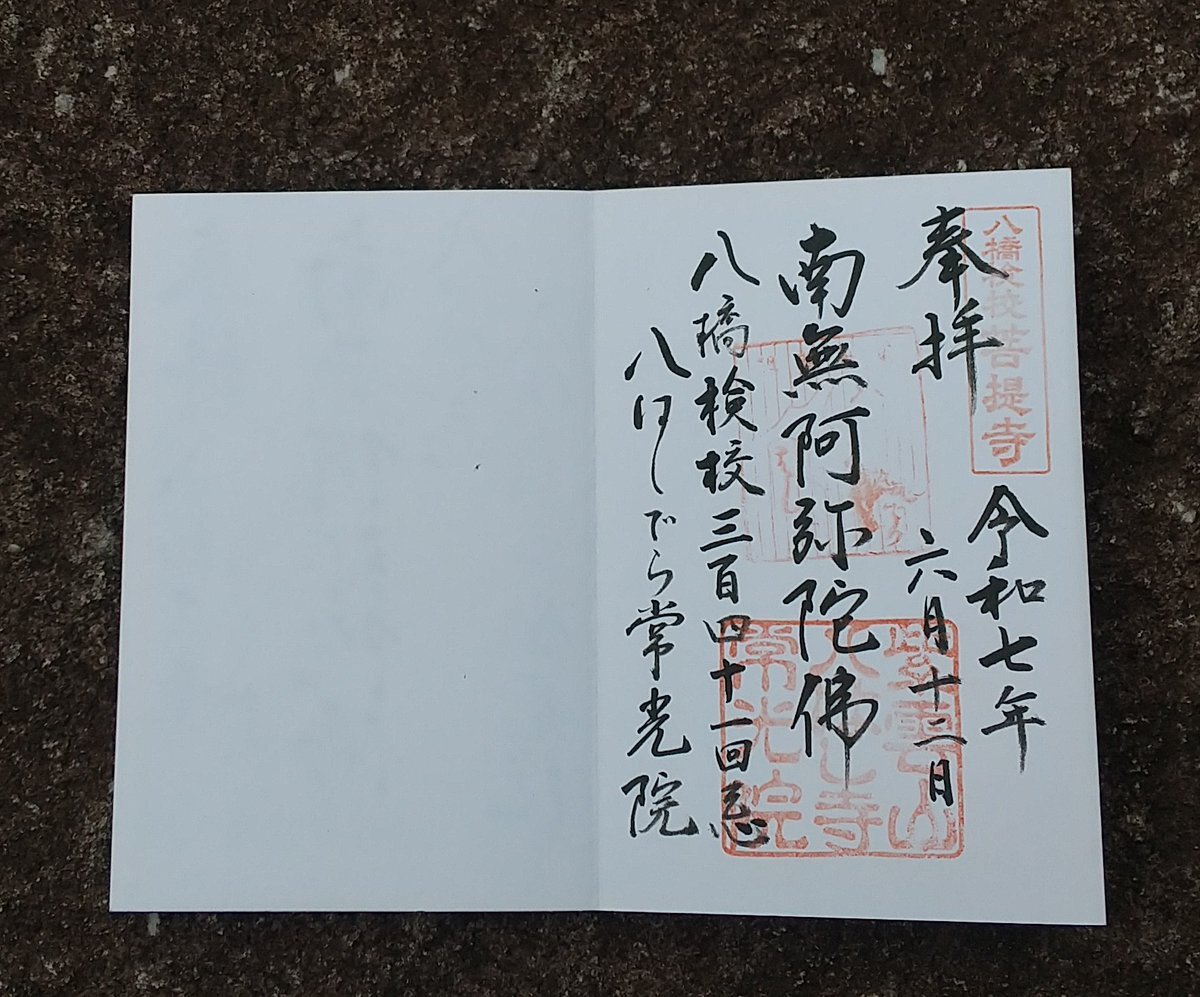 八橋検校菩提寺
奉拝
令和七年
六月十二日
南無阿弥陀佛
八橋検校三百四十一回忌
八はしでら常光院
紫雲山
八はし寺
常光院